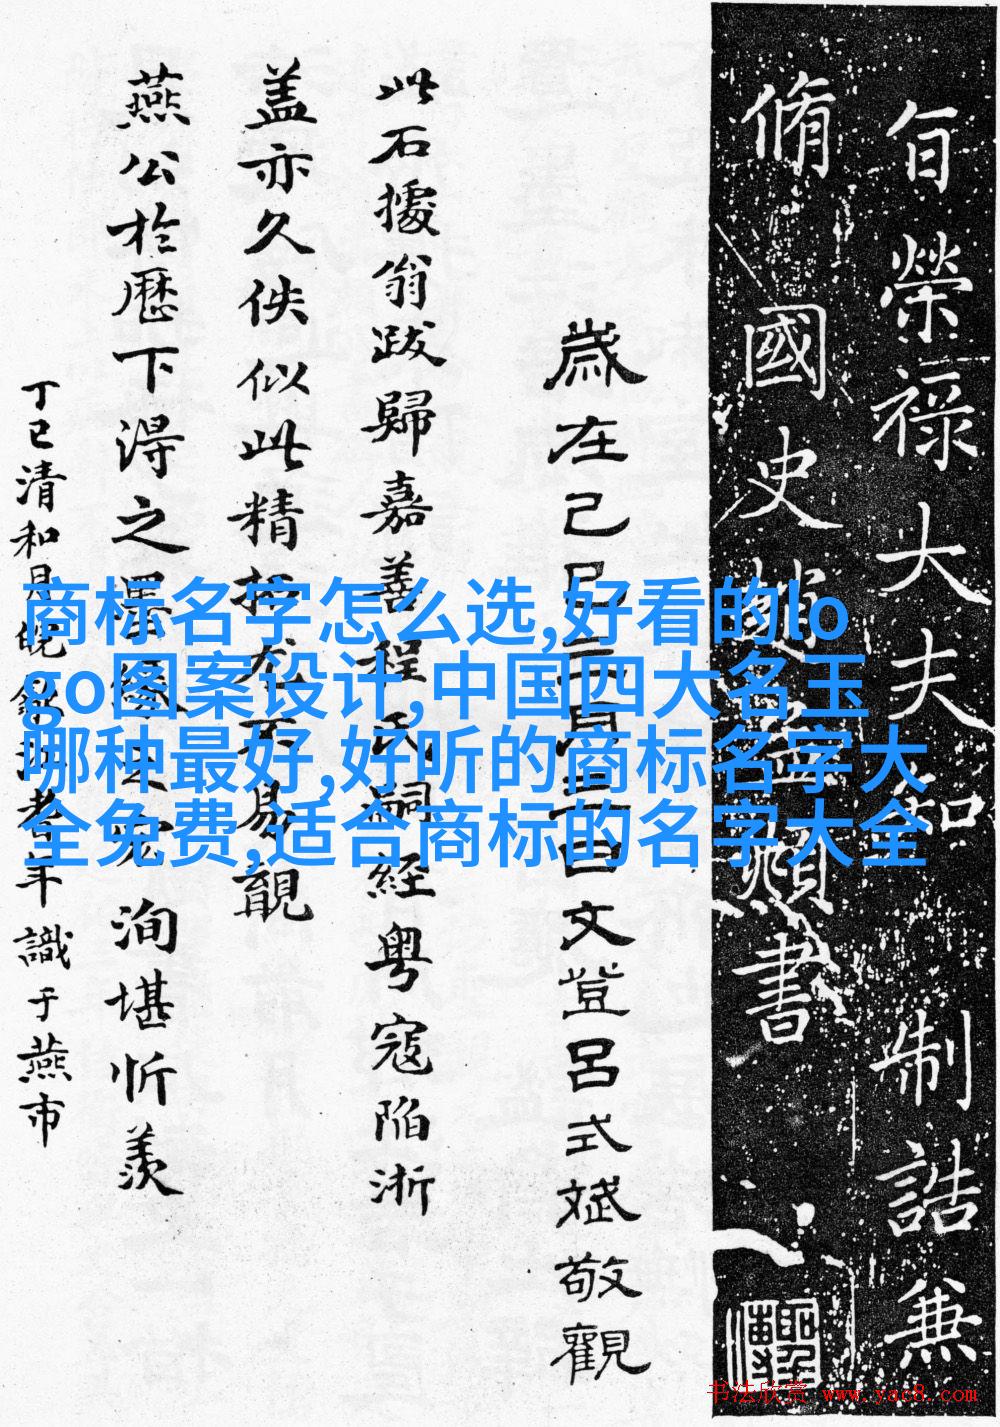 自榮祿大夫知制誥兼
脩國史趙孟頫書
歲在己巳三月三日文登呂式斌敬觀
此石據翁跋歸嘉善程氏嗣經粤寇陷淅
盖亦久佚似此精拓尤不易覯
燕公於歷下淂之洵堪忻羡
丁巳清和月老年識于燕市
商标名字怎么选,好看的lo
go图案设计,中国四大名玉
哪种最好,好听的商标名字大
全免费,适合商标的名字大全
书法欣赏 www.yac8.com